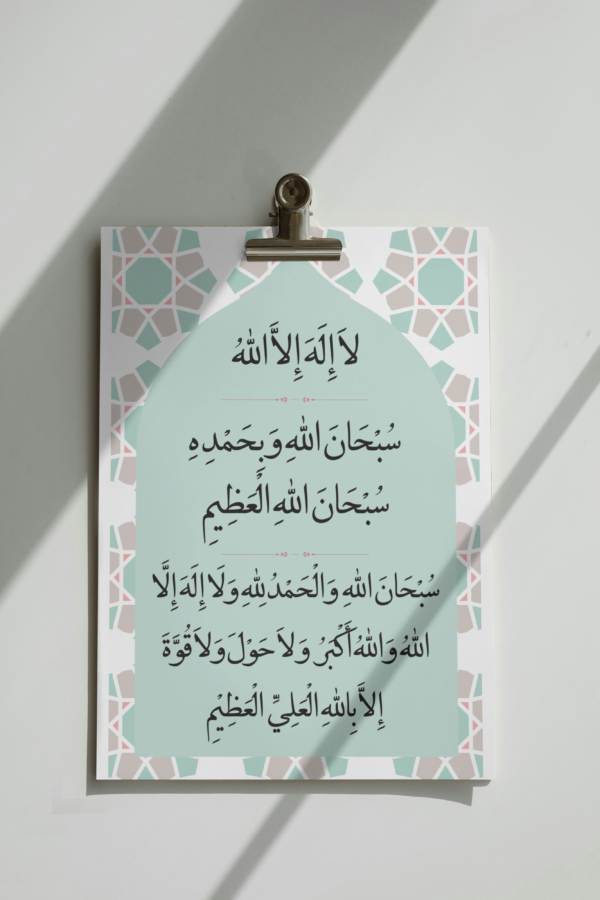 لاَ إِلَهَ إِلاَّ اللهُ
سُبْحَانَ اللهِ وَبِحَمْدِهِ
سُبْحَانَ اللهِ الْعَظِيمِ
سُبْحَانَ اللهِ وَالْحَمْدُ لِلهِ وَلَا إِلَهَ إِلَّا
اللهُ وَاللهُ أَكْبَرُ وَلاَ حَوْلَ وَلاَ قُوَّةَ
إِلاَّ بِاللهِ الْعَلِيِّ الْعَظِيْمِ